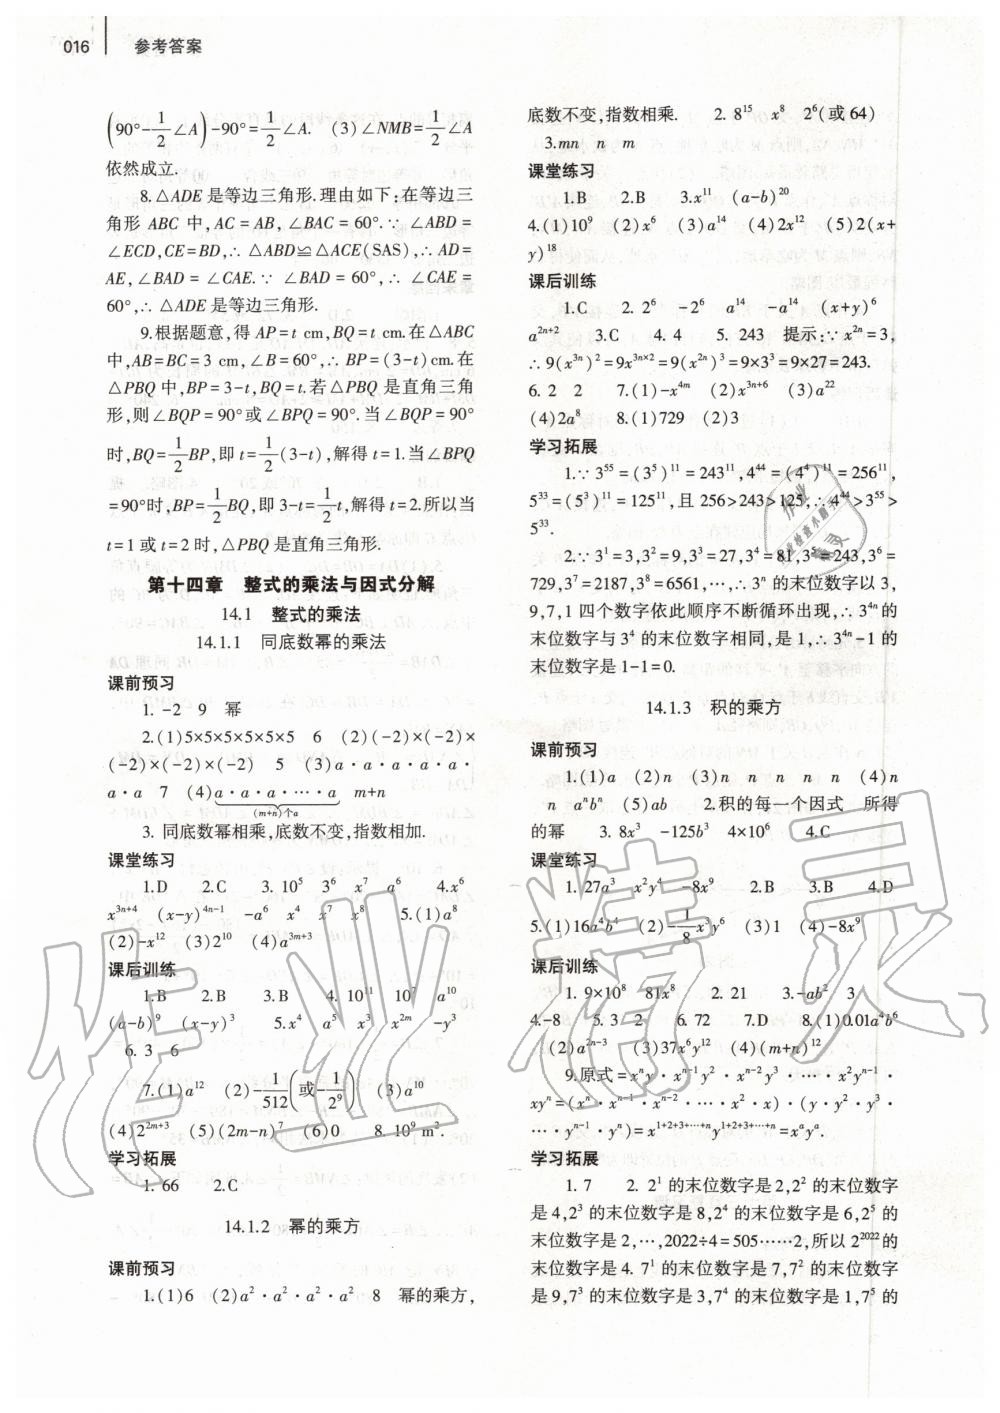 016 参考答案
(90°-1/2∠A)-90°=1/2∠A. (3)∠NMB=1/2∠A
依然成立.
8.△ADE 是等边三角形.理由如下:在等边三
角形 ABC 中,AC=AB,∠BAC=60°.∵ ∠ABD=
∠ECD,CE=BD,∴ △ABD≌△ACE(SAS),∴AD=
AE,∠BAD=∠CAE.∵ ∠BAD=60°,∴ ∠CAE=
60°,∴ △ADE 是等边三角形.
9.根据题意,得 AP=t cm,BQ=t cm.在△ABC
中,AB=BC=3 cm,∠B=60°,∴ BP=(3-t)cm.在
△PBQ 中,BP=3-t,BQ=t.若△PBQ 是直角三角
形,则∠BQP=90°或∠BPQ=90°.当∠BQP=90°
时,BQ=1/2BP,即 t=1/2(3-t),解得 t=1.当∠BPQ
=90°时,BP=1/2BQ,即 3-t=1/2t,解得 t=2.所以当
t=1 或 t=2 时,△PBQ 是直角三角形.
第十四章 整式的乘法与因式分解
14.1 整式的乘法
14.1.1 同底数幂的乘法
课前预习
1. -2 9 幂
2.(1)5×5×5×5×5×5 6 (2)(-2)×(-2)×
(-2)×(-2)×(-2) 5 (3)a·a·a·a·a·
a·a 7 (4)a·a·a·…·a m+n
(m+n)个a
3. 同底数幂相乘,底数不变,指数相加.
课堂练习
1.D 2.C 3. 10⁵ 3⁶ x⁷ a⁶ 4.x⁶
x³ⁿ⁺⁴ (x-y)⁴ⁿ⁻¹ -a⁶ x⁴ x⁷ x⁸ 5.(1)a⁸
(2)-x¹² (3)2¹⁰ (4)a³ᵐ⁺³
课后训练
1.B 2.B 3.B 4. 10¹¹ 10⁷ a¹⁰
(a-b)⁹ (x-y)³ 5.x⁴ a⁵ x³ x²ᵐ -y³
6. 3 6
7.(1)a¹² (2)-1/512(或-1/2⁹) (3)a¹⁰
(4)2²ᵐ⁺³ (5)(2m-n)⁷ (6)0 8. 10⁹ m².
学习拓展
1. 66 2.C
14.1.2 幂的乘方
课前预习
1.(1)6 (2)a²·a²·a²·a² 8 幂的乘方,
底数不变,指数相乘. 2. 8¹⁵ x⁸ 2⁶(或 64)
3.mn n m
课堂练习
1.B 2.B 3.x¹¹ (a-b)²⁰
4.(1)10⁹ (2)x⁶ (3)a¹⁴ (4)2x¹² (5)2(x+
y)¹⁸
课后训练
1.C 2. 2⁶ -2⁶ a¹⁴ -a¹⁴ (x+y)⁶
a²ⁿ⁺² 3.C 4. 4 5. 243 提示:∵ x²ⁿ=3,
∴ 9(x³ⁿ)²=9x³ⁿˣ²=9(x²ⁿ)³=9×3³=9×27=243.
6. 2 2 7.(1)-x⁴ᵐ (2)x³ⁿ⁺⁶ (3)a²²
(4)2a⁸ 8.(1)729 (2)3
学习拓展
1.∵ 3⁵⁵=(3⁵)¹¹=243¹¹,4⁴⁴=(4⁴)¹¹=256¹¹,
5³³=(5³)¹¹=125¹¹,且 256>243>125,∴4⁴⁴>3⁵⁵>
5³³.
2.∵ 3¹=3,3²=9,3³=27,3⁴=81,3⁵=243,3⁶=
729,3⁷=2187,3⁸=6561,…,∴ 3ⁿ 的末位数字以 3,
9,7,1 四个数字依此顺序不断循环出现,∴ 3⁴ⁿ的
末位数字与 3⁴ 的末位数字相同,是 1,∴ 3⁴ⁿ-1 的
末位数字是 1-1=0.
14.1.3 积的乘方
课前预习
1.(1)a (2)n (3)n n n n n (4)n
n aⁿbⁿ (5)ab 2.积的每一个因式 所得
的幂 3. 8x³ -125b³ 4×10⁶ 4.C
课堂练习
1. 27a³ x²y⁴ -8x⁹ 2.B 3.B 4.D
5.(1)16a⁴b⁴ (2)-1/8x³y⁶ (3)1 (4)-8x⁹
课后训练
1. 9×10⁸ 81x⁸ 2. 21 3.-ab² 3
4.-8 5. 3 2 6. 72 7.D 8.(1)0.01a⁴b⁶
(2)a²ⁿ⁻³ (3)37x⁶y¹² (4)(m+n)¹²
9.原式=xⁿy·xⁿ⁻¹y²·xⁿ⁻²y³·…·x²yⁿ⁻¹·
xyⁿ=(xⁿ·xⁿ⁻¹·xⁿ⁻²·…·x²·x)·(y·y²·y³·
…·yⁿ⁻¹·yⁿ)=x¹⁺²⁺³⁺…⁺ⁿy¹⁺²⁺³⁺…⁺ⁿ=xᵃyᵃ.
学习拓展
1. 7 2. 2¹ 的末位数字是 2,2² 的末位数字
是 4,2³ 的末位数字是 8,2⁴ 的末位数字是 6,2⁵ 的
末位数字是 2,…,2022÷4=505……2,所以 2²⁰²² 的
末位数字是 4. 7¹ 的末位数字是 7,7² 的末位数字
是 9,7³ 的末位数字是 3,7⁴ 的末位数字是 1,7⁵ 的
作业精灵